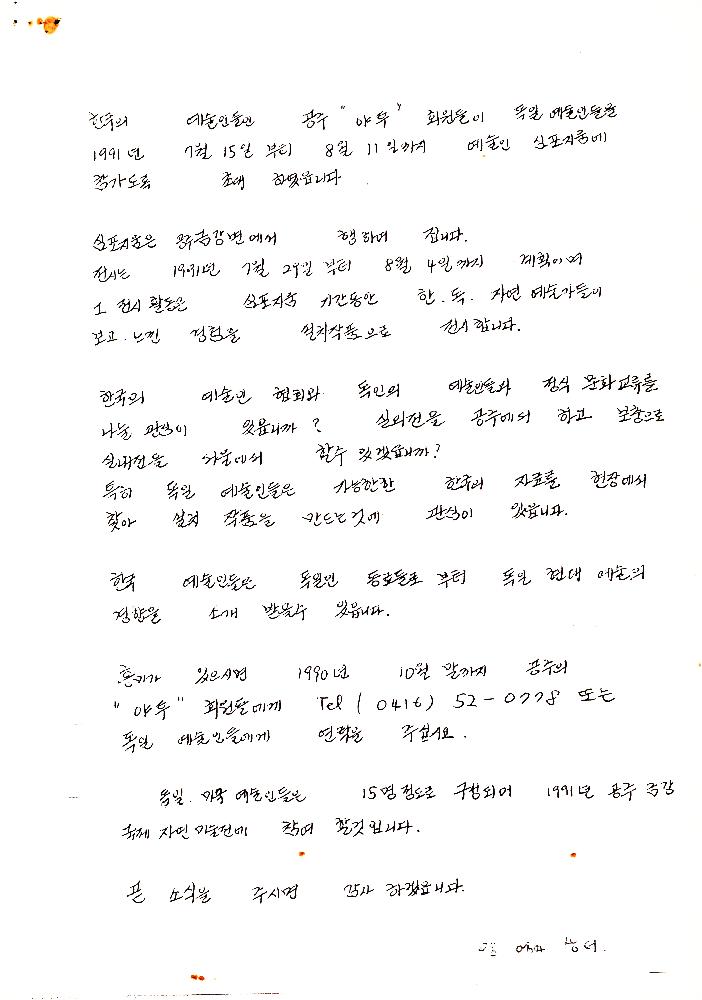 한국의 예술인들인 공주 "야투" 회원들이 독일 예술인들을
1991년 7월 15일 부터 8월 11일까지 예술인 심포지움에
참가도록 초대 하였읍니다.
심포지움은 공주금강변에서 행하여 집니다.
전시는 1991년 7월 29일 부터 8월 4일까지 계획이며
그 전시 활동은 심포지움 기간동안 한.독. 자연 예술가들이
보고.느낀 경험을 설치작품으로 전시합니다.
한국의 예술인 협회와 독일의 예술인들과 정식 문화교류를
나눌 관심이 있읍니까? 실외전을 공주에서 하고 보충으로
실내전을 서울에서 할수 있겠읍니까?
특히 독일 예술인들은 가능한한 한국의 자료를 현장에서
찾아 설치 작품을 만드는것에 관심이 있읍니다.
한국 예술인들은 독일인 동료들로 부터 독일 현대 예술의
경향을 소개 받을수 있읍니다.
흥미가 있으시면 1990년 10월 말까지 공주의
"야투" 회원들에게 Tel (0416) 52-0778 또는
독일 예술인들에게 연락을 주십시요.
독일. 예술인들은 15명정도로 구성되어 1991년 공주 금강
국제 자연 미술전에 참여 할것 입니다.
곧 소식을 주시면 감사 하겠읍니다.